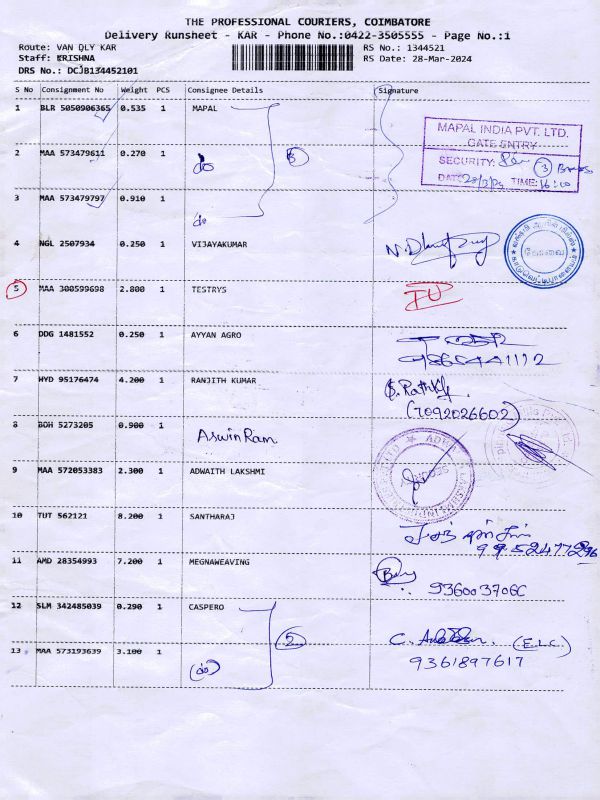 THE PROFESSIONAL COURIERS, COIMBATORE
Delivery Runsheet - KAR - Phone No.:0422-3505555 - Page No.:1
Route: VAN DLY KAR
RS No.: 1344521
Staff: KRISHNA
RS Date: 28-Mar-2024
DRS No.: DCJB134452101
S No Consignment No Weight PCS Consignee Details Signature
1 BLR 5050906365 0.535 1 MAPAL
MAPAL INDIA PVT. LTD.
GATE ENTRY
2 MAA 573479611 0.270 1 do 3
SECURITY: 3
DATE: 28/3/24 TIME: 16:10
3 MAA 573479797 0.910 1 do
4 NGL 2507934 0.250 1 VIJAYAKUMAR
கோவை
5 MAA 300599698 2.800 1 TESTRYS
6 DDG 1481552 0.250 1 AYYAN AGRO
7 HYD 95176474 4.200 1 RANJITH KUMAR
(7092026602)
8 BOH 5273205 0.900 1 Aswin Ram
9 MAA 572053383 2.300 1 ADWAITH LAKSHMI
10 TUT 562121 8.200 1 SANTHARAJ
11 AMD 28354993 7.200 1 MEGNAWEAVING
12 SLM 342485039 0.290 1 CASPERO
2 (E.L.C.)
13 MAA 573193639 3.100 1 (do) 9361897617